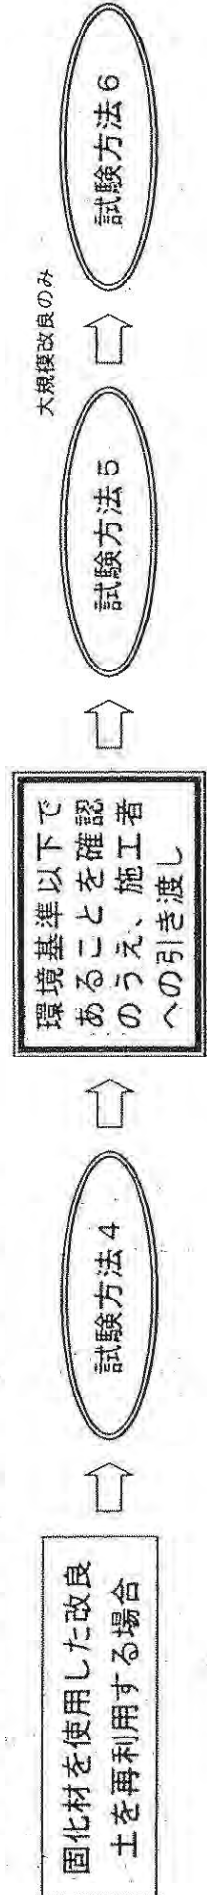 固化材を使用した改良
土を再利用する場合
試験方法4
環境基準以下で
あることを確認
のうえ、施工者
への引き渡し
試験方法5
大規模改良のみ
試験方法6